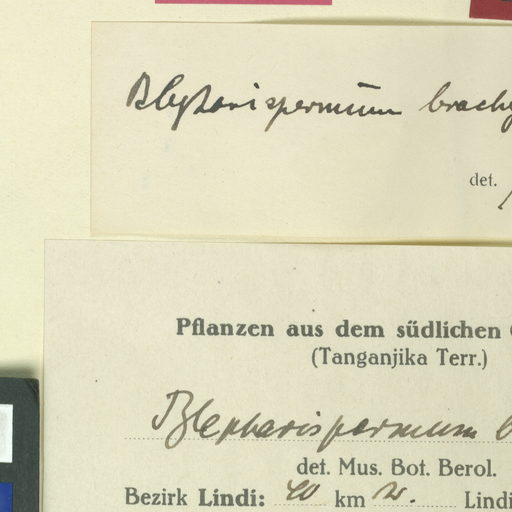 Blepharispermum brachy
det.
Pflanzen aus dem südlichen
(Tanganjika Terr.)
Blepharispermum b
det. Mus. Bot. Berol.
Bezirk Lindi: 40 km W. Lindi